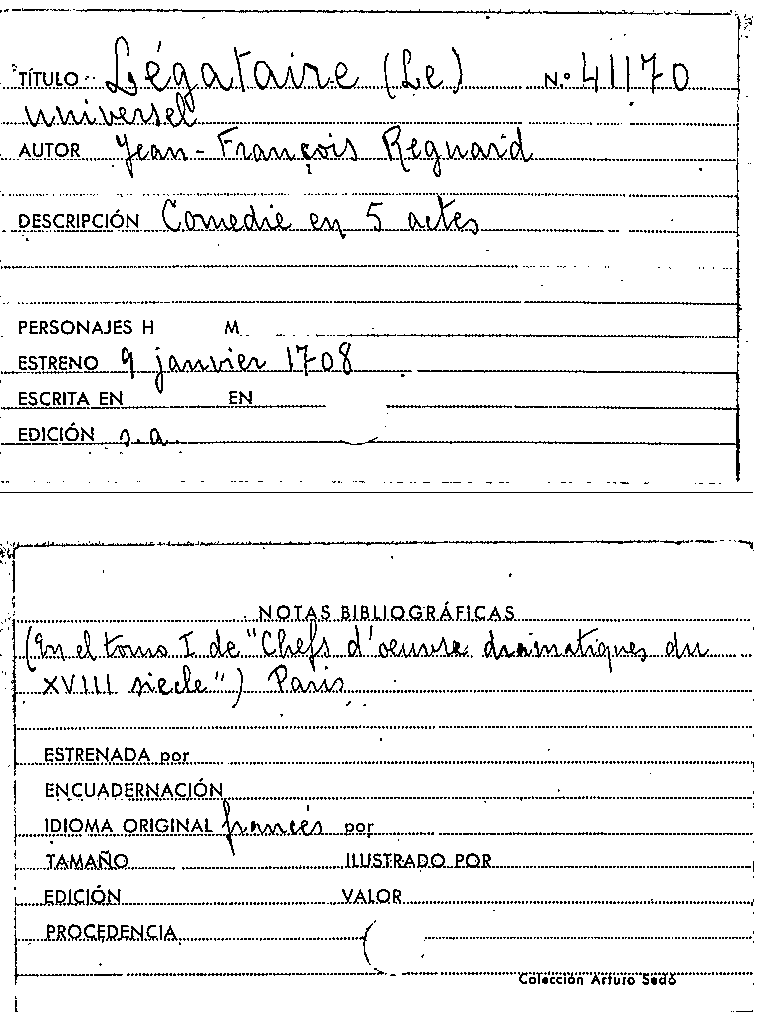 TÍTULO Légataire (Le) N.º 41170
universel
AUTOR Jean-François Regnard
DESCRIPCIÓN Comedie en 5 actes
PERSONAJES H M.
ESTRENO 9 janvier 1708
ESCRITA EN EN
EDICIÓN s.a.
NOTAS BIBLIOGRÁFICAS
(En el tomo I de "Chefs d'oeuvre dramatiques du
XVIII siecle") Paris
ESTRENADA por
ENCUADERNACIÓN
IDIOMA ORIGINAL francés por
TAMAÑO ILUSTRADO POR
EDICIÓN VALOR
PROCEDENCIA
Colección Arturo Sedó